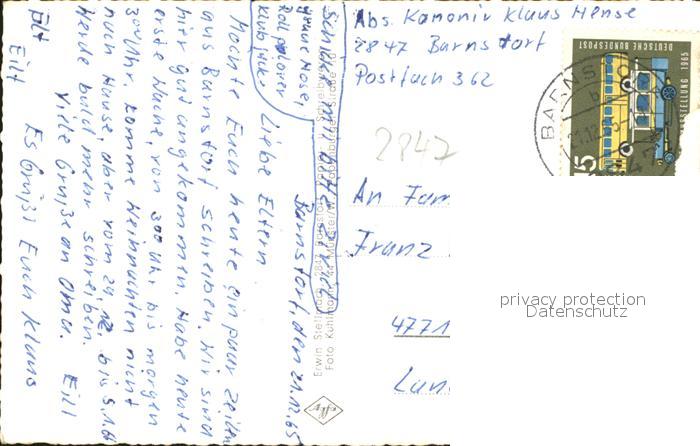 Abs. Kanonir Klaus Hense
2847 Barnstorf
Postfach 362
2847
An Fam
Franz
4771
Barnstorf, den 21.12.65
Liebe Eltern
Möchte Euch heute ein paar Zeilen
aus Barnstorf schreiben. Wir sind
hier gut angekommen. Habe heute
erste Wache, von 300 Uhr bis morgen
300 Uhr. Komme Weihnachten nicht
nach Hause, aber vom 29.12. bis 5.1.66
Werde bald mehr schreiben.
Viele Grüße an Oma. Eilt
Es Grüßt Euch Klaus
Eilt
Eilt
Schickt mir bitte
Hose,
Rollpullover
Erwin Stellmach, 2847 Barnstorf
Foto Kuhlmann, 44 Münster/W.
DEUTSCHE BUNDESPOST
1965
15
BARNSTORF
privacy protection
Datenschutz